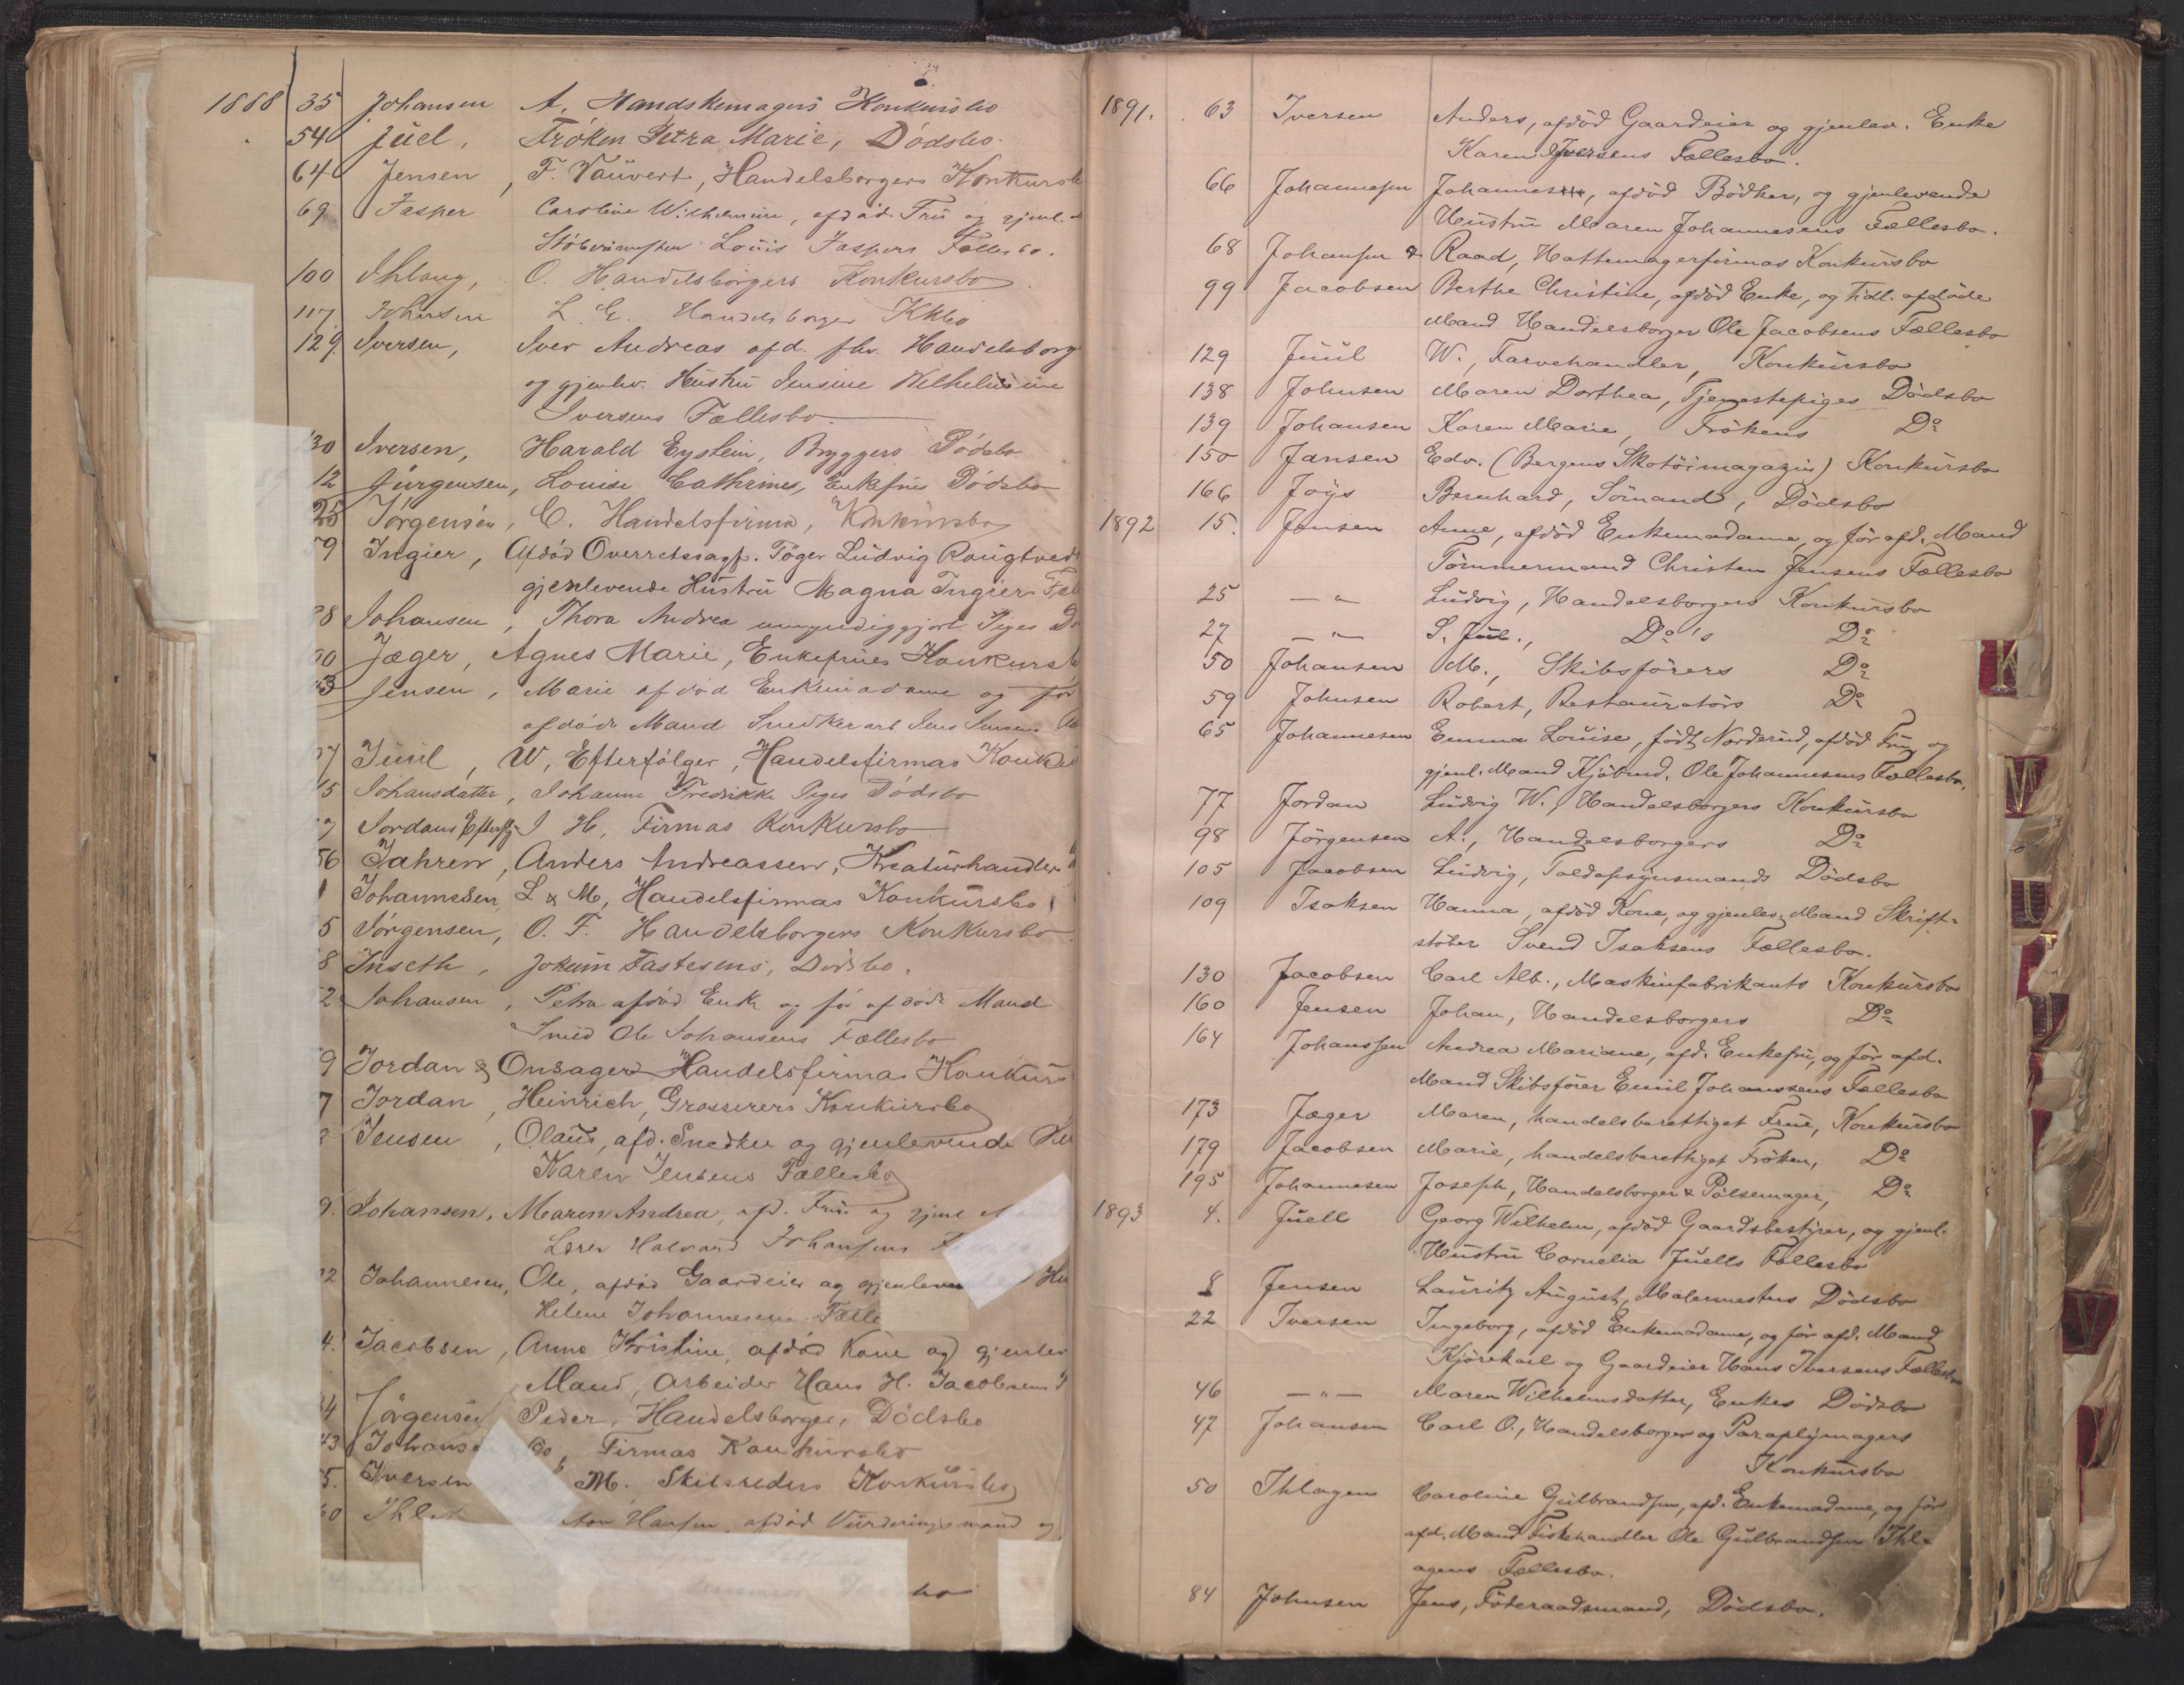 1888 35 Johansen A. Handskemagers Konkursbo
54 Juel, Fröken Petra Marie, Dödsbo.
64 Jensen, F. Vauvert, Handelsborgers Konkursb
69 Jasper Caroline Wilhelmine, afdöd Fru og gjenl.
Louis Jaspers Fællesbo.
100 Ihlang, O. Handelsborgers Konkursbo
117 Johnsen L. E. Handelsborger Kkbo
129 Iversen, Iver Andreas afd. fhv. Handelsborg
og gjenlev. Hustru Jensine Wilhelmine
Iversens Fællesbo
30 Iversen, Harald Eystein, Bryggers Dödsbo
12 Jürgensen, Louise Cathrines, Enkefrues Dödsbo
25 Jörgensen, C. Handelsfirma, Konkursbo
59 Ingier, Afdöd Overretssagf. Töger Ludvig Rougtvedt
gjenlevende Hustru Magna Ingiers Fæl
98 Johansen, Thora Andrea umyndiggjort Piges Dö
00 Jæger, Agnes Marie, Enkefrues Konkursb
43 Jensen, Marie afdöd Enkemadame og för
afdöde Mand Snedker Jens Jensens
07 Juul, W, Efterfölger, Handelsfirmas Konku
15 Johansdatter, Johanne Fredrikke Piges Dödsbo
Jordans Efterflg. J H, Firmas Konkursbo
56 Jahren, Anders Andreassen, Kreaturhandler
1 Johannesen, L & M, Handelsfirmas Konkursbo
5 Jörgensen, O. F. Handelsborgers Konkursbo
8 Inseth, Jokum Fastesens, Dödsbo.
2 Johansen, Petra afdöd Enke og för afdöde Mand
Smed Ole Johansens Fællesbo
9 Jordan & Onsager Handelsfirmas Konkurs
7 Jordan, Heinrich, Grosserers Konkursbo
8 Jensen, Olaus, afd. Snedker og gjenlevende Hu
Karen Jensens Fællesbo
9. Johansen, Maren Andrea, afd. Frue og gjenl
Lærer Halvard Johansens F
22 Johannesen, Ole, afdöd Gaardeier og gjenleven Hu
Helene Johannesens Fælle
4. Jacobsen, Anne Kristine, afdöd Kone og gjenlev
Mand, Arbeider Hans H. Jacobsens
34 Jörgensen Peder, Handelsborger, Dödsbo
43 Johanse Co, Firmas Konkursbo
5. Iversen M. Skibsreders Konkursbo
60 Ihl Hansen, afdöd Vurderingsmand og
bo
1891. 63 Iversen Anders, afdöd Gaardeier og gjenlev. Enke
Karen Iversens Fællesbo.
66 Johannesen Johannes, afdöd Bödker, og gjenlevende
Hustru Maren Johannesens Fællesbo.
68 Johansen & Raad, Hattemagerfirmas Konkursbo
99 Jacobsen Berthe Christine, afdöd Enke, og tidl. afdöde
Mand Handelsborger Ole Jacobsens Fællesbo
129 Juul W., Farvehandler, Konkursbo
138 Johnsen Maren Dorthea, Tjenestepiges Dödsbo
139 Johansen Karen Marie, Frökens Do
150 Jansen Edv. (Bergens Skotöimagazin) Konkursbo
166 Joys Bernhard, Sömand, Dödsbo
1892 15. Jensen Anne, afdöd Enkemadame og för afd. Mand
Tömmermand Christen Jensens Fællesbo
25 — " — Ludvig, Handelsborgers Konkursbo
27 — " — S. Juul., Do's Do
50 Johansen M., Skibsförers Do
59 Johnsen Robert, Restauratörs Do
65 Johannesen Emma Louise, födt Norderud, afdöd Frue og
gjenl. Mand Kjöbmd. Ole Johannesens Fællesbo.
77 Jordan Ludvig W., Handelsborgers Konkursbo
98 Jörgensen A., Handelsborgers Do
105 Jacobsen Ludvig, Toldopsynsmands Dödsbo
109 Isaksen Hanna, afdöd Kone, og gjenlev. Mand Skrift-
stöber Svend Isaksens Fællesbo.
130 Jacobsen Carl Alb., Maskinfabrikants Konkursbo
160 Jensen Johan, Handelsborgers Do
164 Johanssen Andrea Mariane, afd. Enkefru, og för afd.
Mand Skibsförer Emil Johanssens Fællesbo
173 Jæger Maren, handelsberettiget Frue, Konkursbo
179 Jacobsen Marie, handelsberettiget Fröken, Do
195 Johannesen Joseph, Handelsborger & Pölsemager, Do
1893 4. Juell Georg Wilhelm, afdöd Gaardsbestyrer, og gjenl.
Hustru Cornelia Juells Fællesbo
8 Jensen Lauritz August, Malermesters Dödsbo
22 Iversen Ingeborg, afdöd Enkemadame, og för afd. Mand
Kjörekarl og Gaardeier Hans Iversens Fællesbo
46 — " — Maren Wilhelmsdatter, Enkes Dödsbo
47 Johansen Carl O., Handelsborger og Paraplymagers
Konkursbo
50 Ihlagen Caroline Gulbrandsen, afd. Enkemadame, og för
afd. Mand Fiskehandler Ole Gulbrandsen Ihl-
agens Fællesbo.
84 Johnsen Jens, Föderaadsmand, Dödsbo.
K
M
V